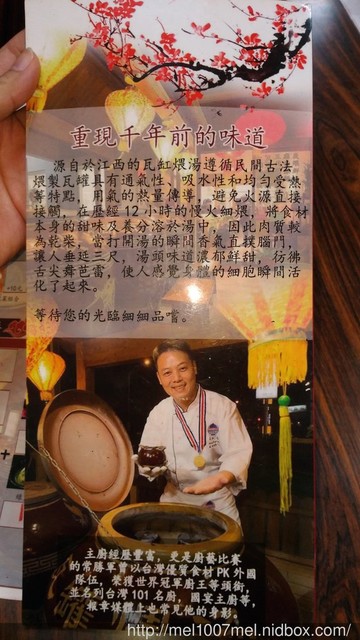 重現千年前的味道
源自於江西的瓦缸煨湯遵循民間古法，
煨製瓦罐具有通氣性、吸水性和均勻受熱
等特點，用氣的熱量傳導，避免火源直接
接觸，在歷經12小時的慢火細煨，將食材
本身的甜味及養分溶於湯中，因此肉質較
為乾柴，當打開湯的瞬間香氣直撲腦門，
讓人垂廷三尺，湯頭味道濃郁鮮甜，彷彿
舌尖舞芭雷，使人感覺身體的細胞瞬間活
化了起來。
等待您的光臨細細品嚐。
主廚經歷豐富，更是廚藝比賽
的常勝軍曾以台灣優質食材PK外國
隊伍，榮獲世界冠軍廚王等頭銜，
並名列台灣101名廚，國宴主廚等，
報章媒體上也常見他的身影。
http://mel1007mel.nidbox.com/